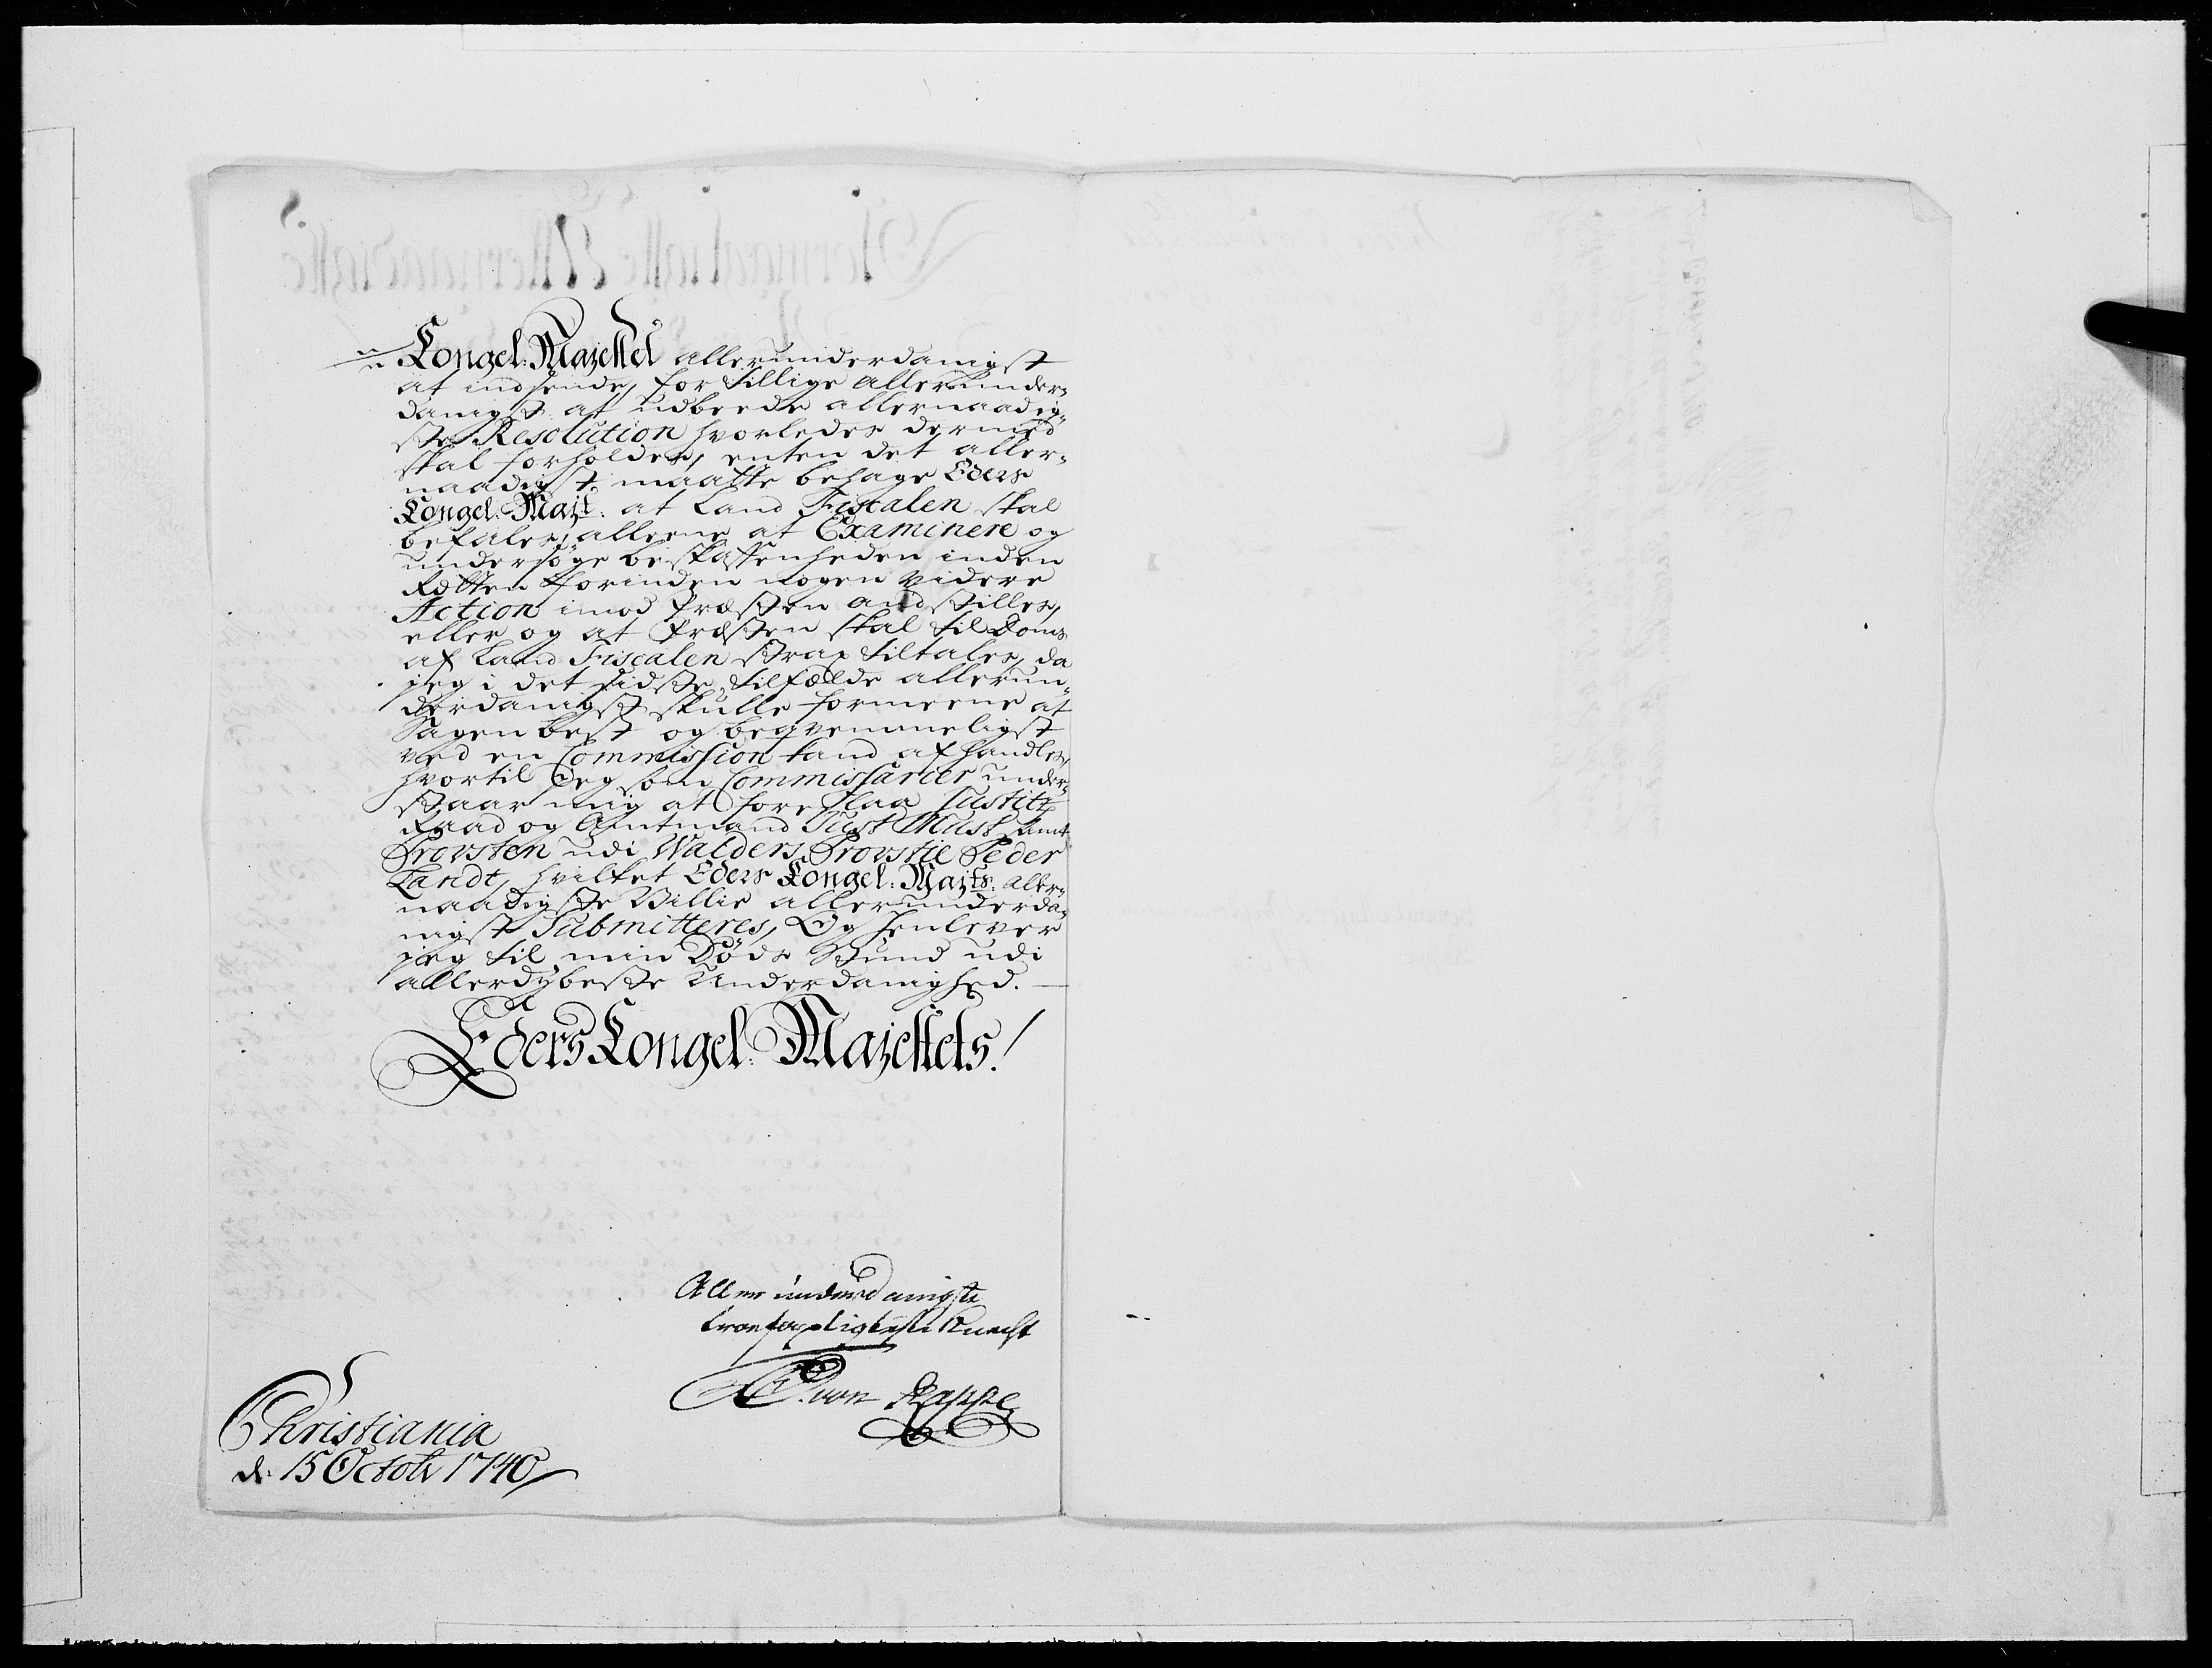 Kongel: Mayestet allerunderdanigst
at indsende, for tillige allerunder¬
danigst at udbeede allernaadig¬
ste Resolution hvorledes dermed
skal forholdes, enten det aller¬
naadigst maatte behage Eders
Kongel: Mayt: at Land Fiscalen skal
befales, alleene at Examinere og
undersøge beskaffenheden inden
Rætten forinden nogen videre
Action imod Præsten andstilles,
eller og at Præsten skal til Doms
af Land Fiscalen strax tiltales, da
jeg i det sidste tilfælde allerun¬
derdanigst skulle formeene at
Sagen best og beqvemmeligst
ved en Commission kand afhandles,
hvortil Jeg som Commissarier under¬
staar mig at foreslaa Justitz
Raad og Amtmand Just Must samt
Provsten udi Walders Provstie Peder
Landt, hvilket Eders Kongel: Mayts: aller¬
naadigste Villie allerunderda¬
nigst Submitteres, Og henlever
jeg til min Døds Stund udi
allerdybeste Underdanighed.
Eders Kongel: Mayestets!
Allerunderdanigste
troepligtigste Knecht
von Rappe
Christiania
d: 15 Octobr 1740